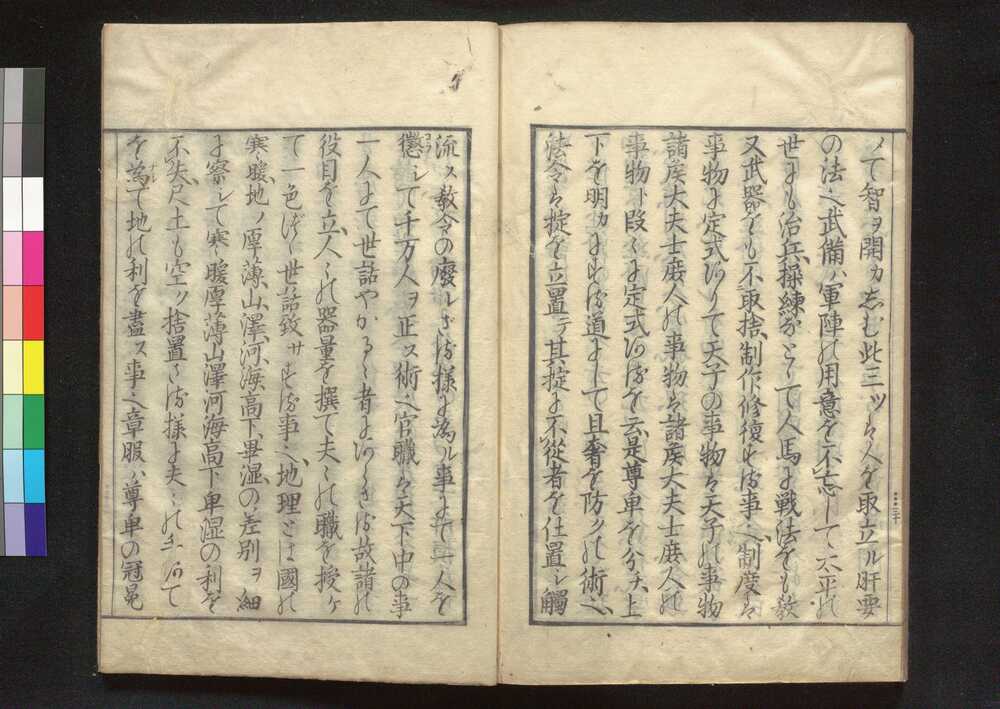 メて智ヲ開カしむ此三ツハ人を取立ル肝要
の法也武備ハ軍陣の用意を不忘して太平の
世にも治兵操練などゝて人馬に戦法をも教
又武器をも不取捨制作修復する事也制度ハ
事物に定式ありて天子の事物ハ天子の事物
諸矦大夫士庶人の事物ハ諸矦大夫士庶人の
事物ト段々に定式あるを云是尊卑を分チ上
下を明カにする道にして且奢を防クの術也
法令ハ掟を立置テ其掟に不從者を仕置シ觸
流ス教令の廢レざる様に為ル事にて一人を
懲シて千万人ヲ正ス術也官職ハ天下中の事
一人にて世話やかるゝ者にあらざる故諸の
役目を立人々の器量を撰て夫々の職を授ケ
て一色づゝ世話致サする事也地理とは國の
寒暖地ノ厚薄山澤河海高下畢湿の差別ヲ細
に察シて寒暖厚薄山澤河海高下卑湿の利を
不失尺土も空ク捨置ざる様に夫々の手当て
を為て地の利を盡ス事也章服ハ尊卑の冠冕